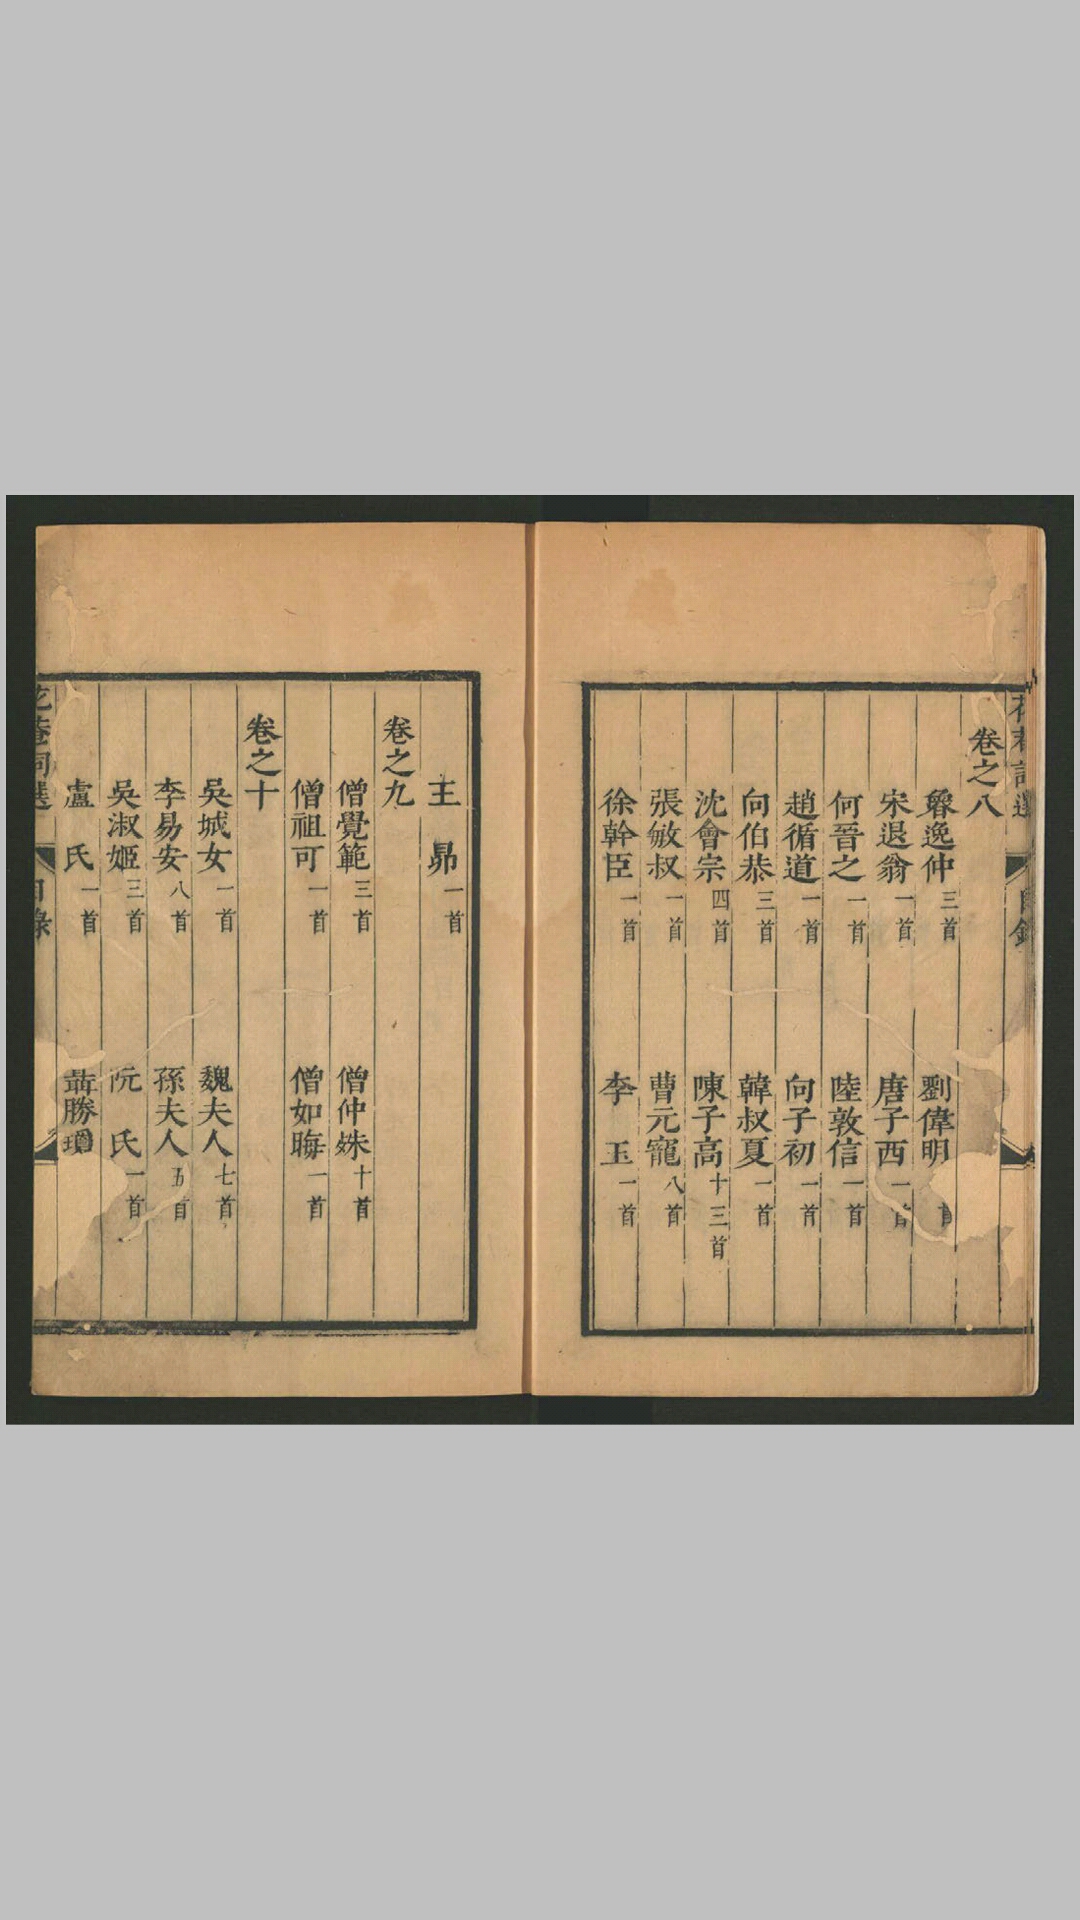 卷之八
魯逸仲三首 劉偉明 首
宋退翁一首 唐子西一首
何晉之一首 陸敦信一首
趙循道一首 向子初一首
向伯恭三首 韓叔夏一首
沈會宗四首 陳子高十三首
張敏叔一首 曹元寵八首
徐幹臣一首 李玉一首
王昴一首
卷之九
僧覺範三首 僧仲姝十首
僧祖可一首 僧如晦一首
卷之十
吳城女一首 魏夫人七首
李易安八首 孫夫人五首
吳淑姬三首 阮氏一首
盧氏一首 聶勝瓊
花菴詞選 目錄